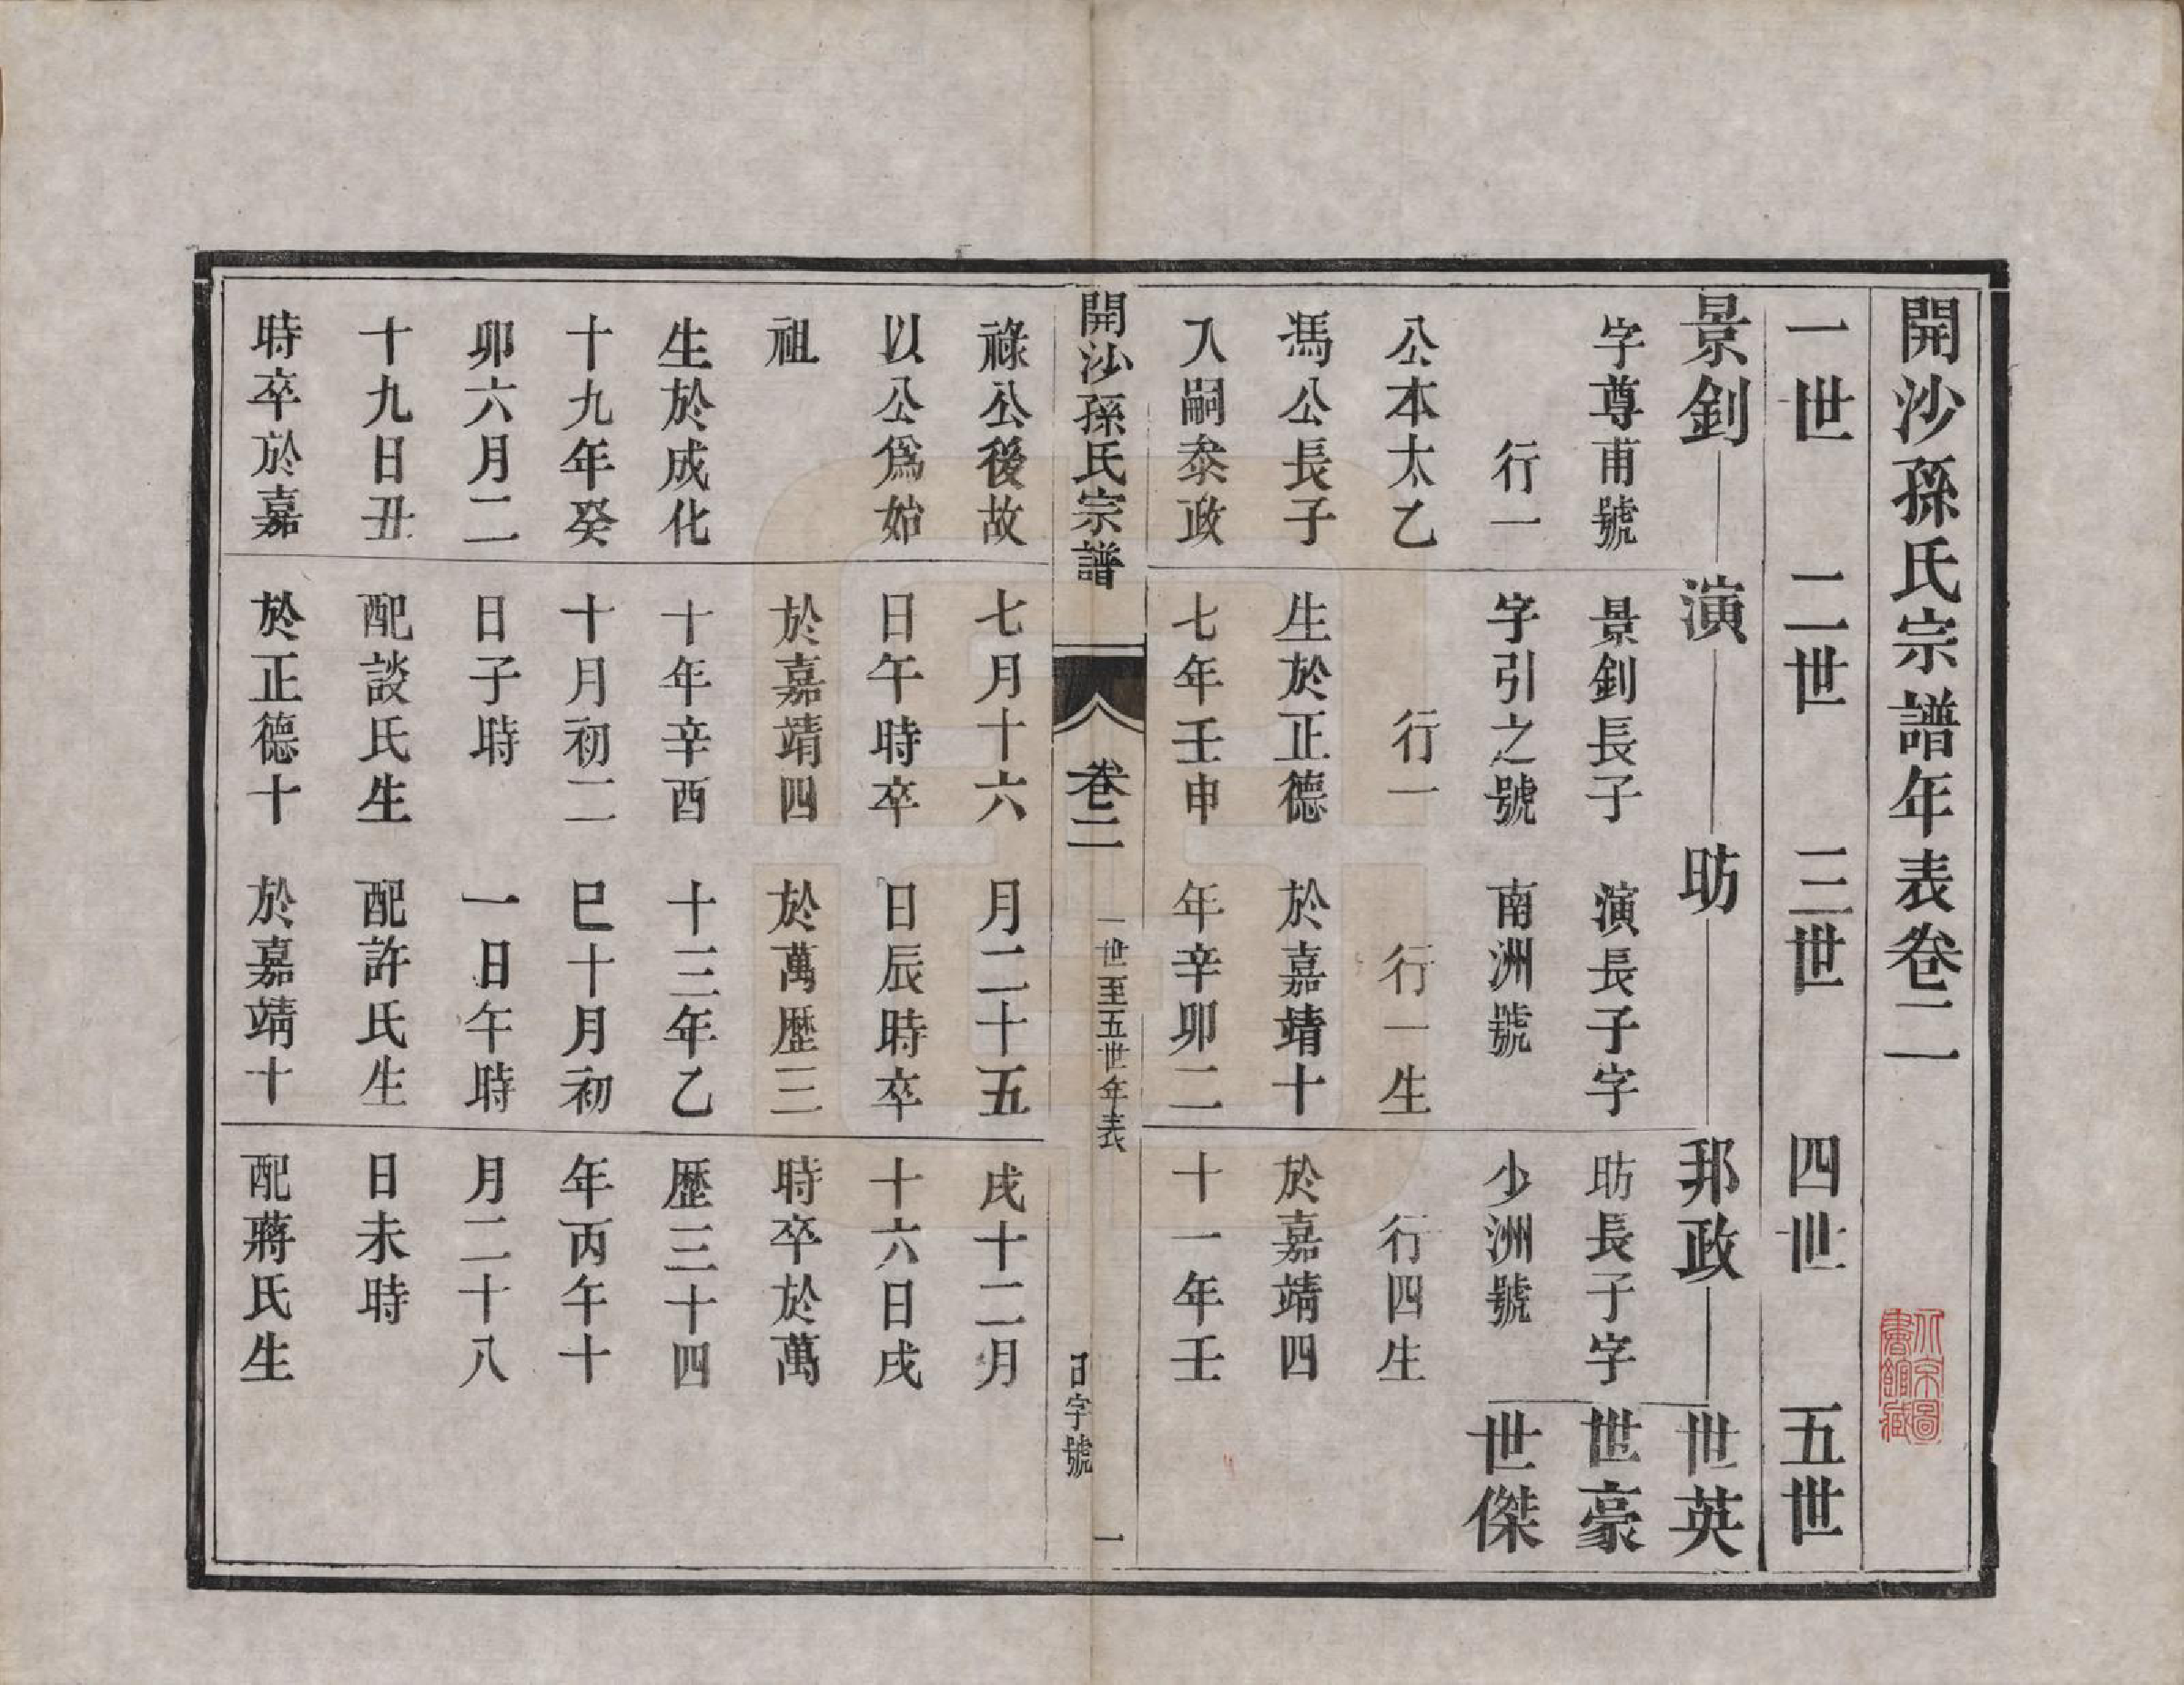 開沙孫氏宗譜年表卷二
一世 二世 三世 四世 五世
北京圖
書館藏
景釗
字尊甫號
行一
公本太乙
馮公長子
入嗣叅政
祿公後故
以公爲始
祖
生於成化
十九年癸
卯六月二
十九日丑
時卒於嘉
演
景釗長子
字引之號
行一
生於正德
七年壬申
七月十六
日午時卒
於嘉靖四
十年辛酉
十月初二
日子時
配談氏生
於正德十
昉
演長子字
南洲號
行一生
於嘉靖十
年辛卯二
月二十五
日辰時卒
於萬歷三
十三年乙
巳十月初
一日午時
配許氏生
於嘉靖十
邦政
昉長子字
少洲號
行四生
於嘉靖四
十一年壬
戌十二月
十六日戌
時卒於萬
歷三十四
年丙午十
月二十八
日未時
配蔣氏生
世英
世豪
世傑
開沙孫氏宗譜
卷二
一世至五世年表
日字號
一